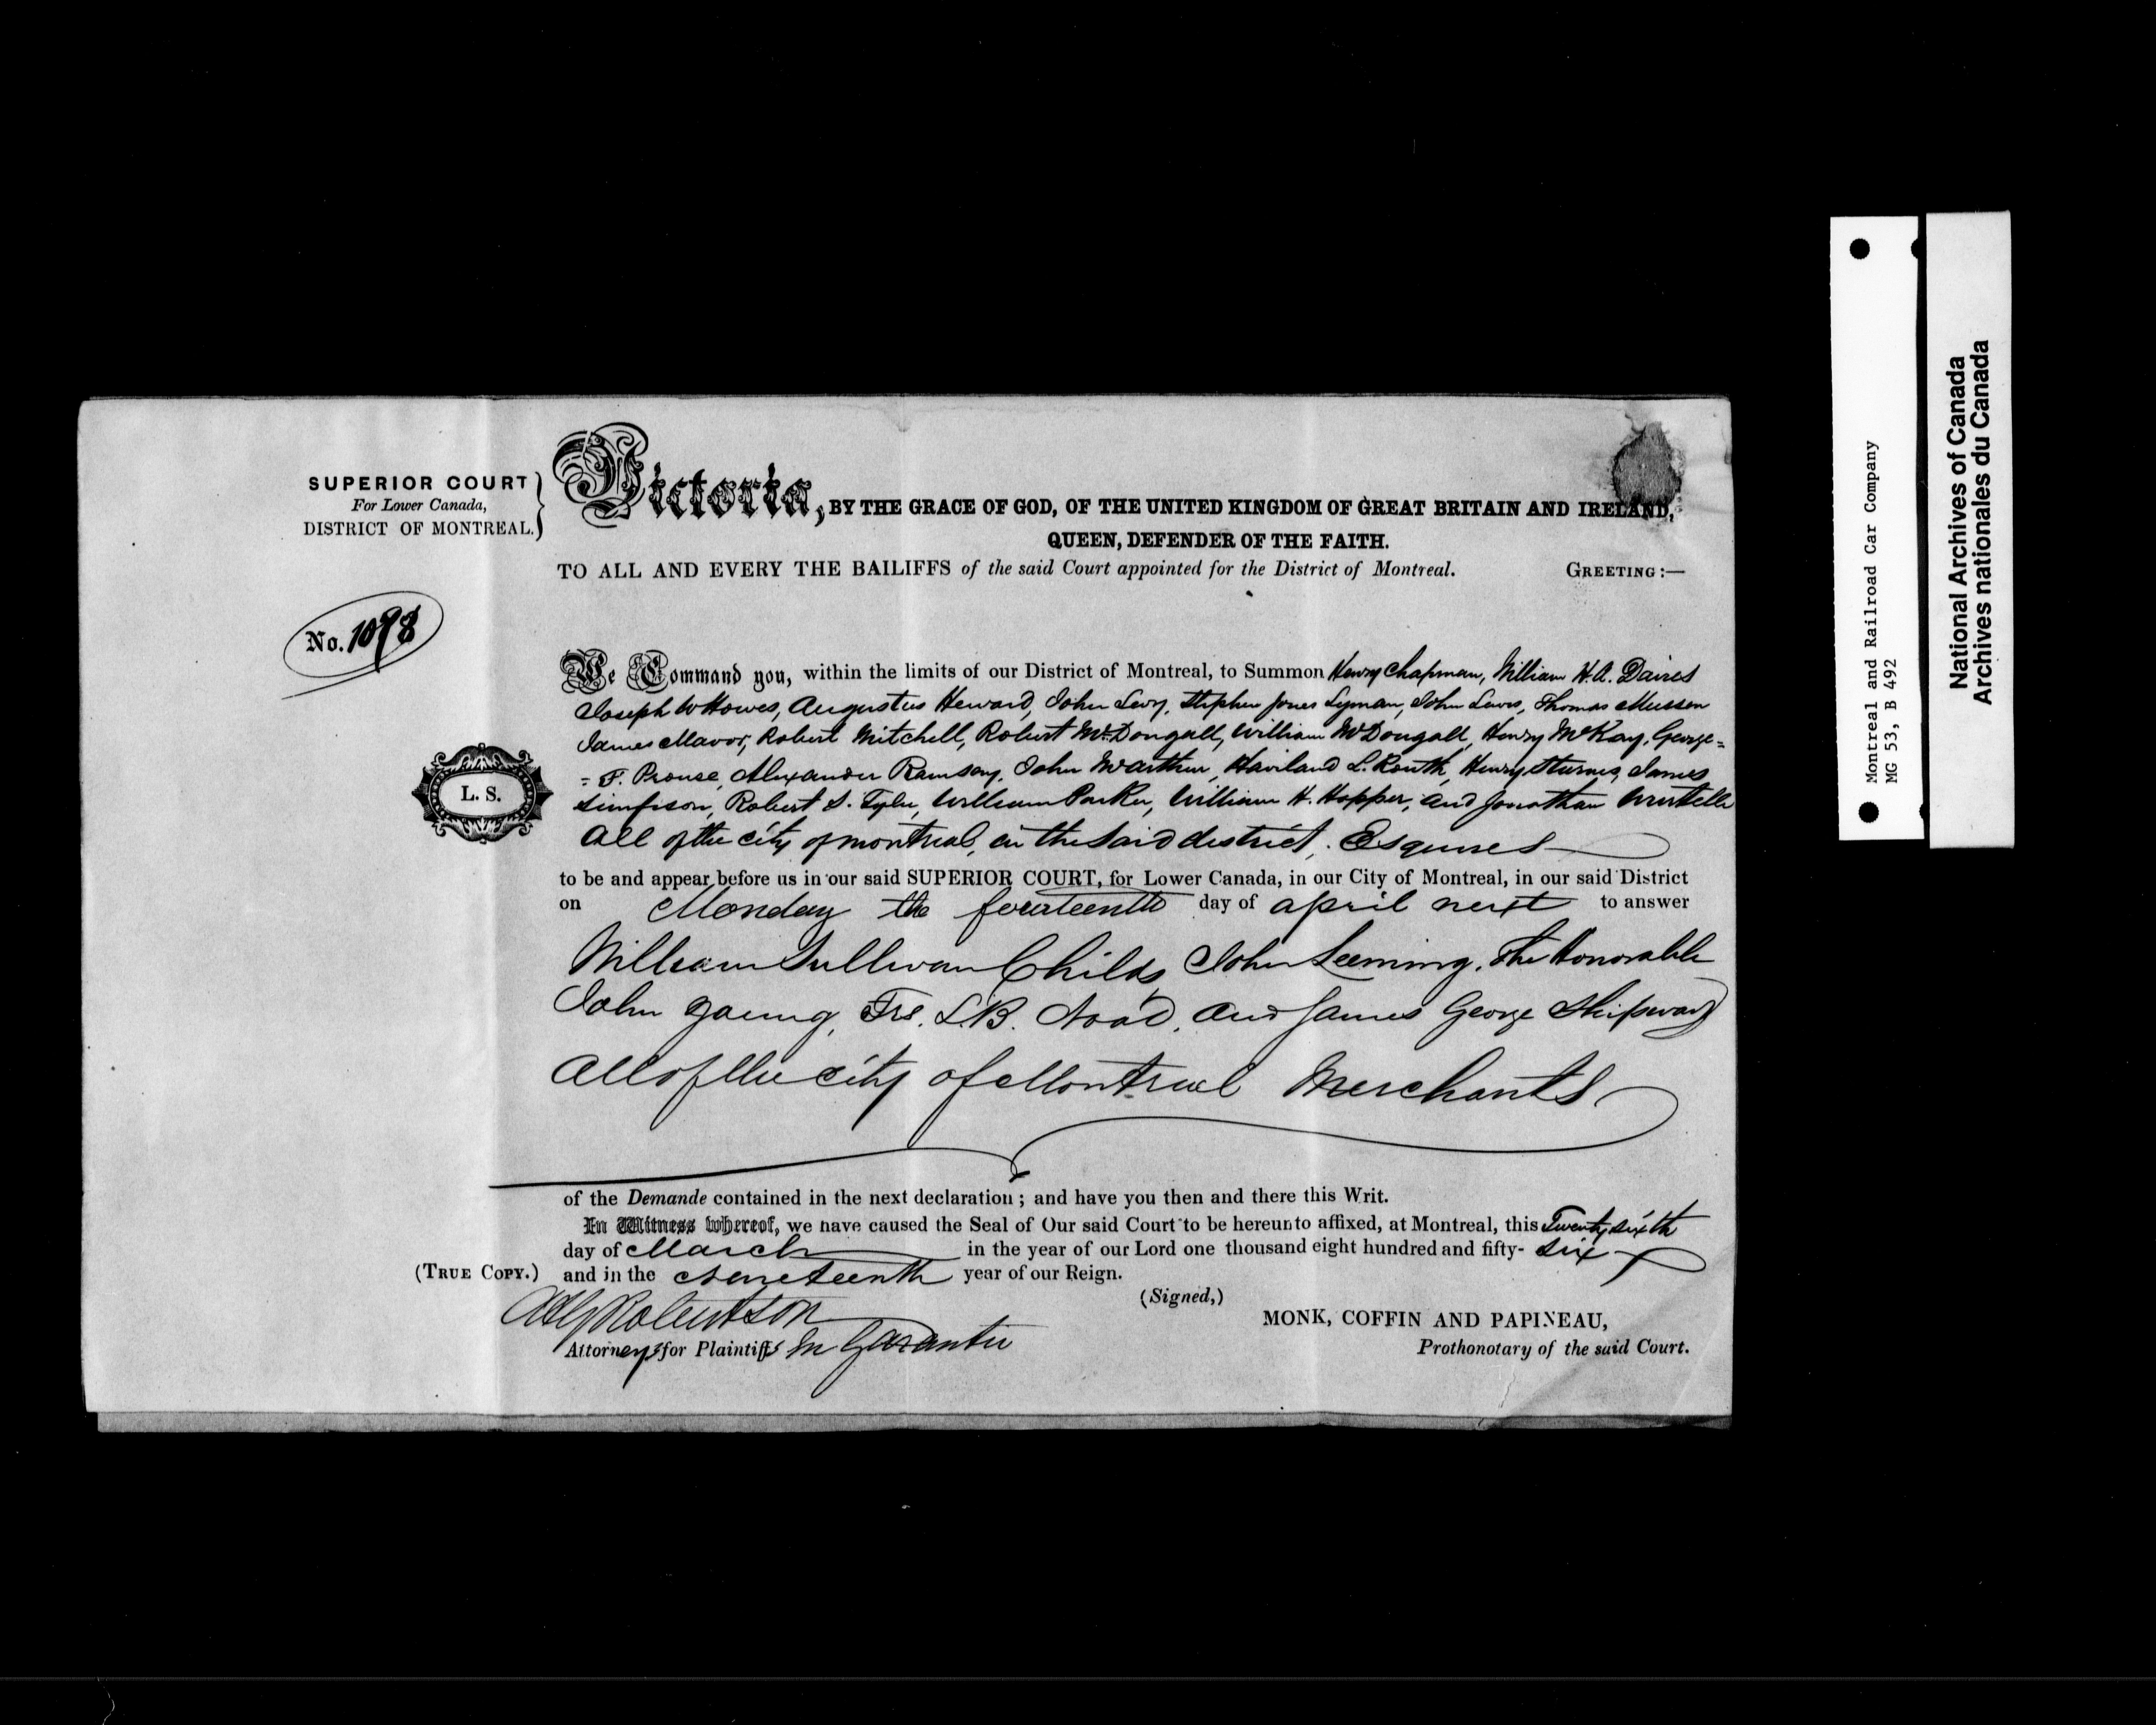 SUPERIOR COURT
For Lower Canada,
DISTRICT OF MONTREAL.
Victoria, BY THE GRACE OF GOD, OF THE UNITED KINGDOM OF GREAT BRITAIN AND IRELAND,
QUEEN, DEFENDER OF THE FAITH.
TO ALL AND EVERY THE BAILIFFS of the said Court appointed for the District of Montreal. GREETING:—
No. 1098
We Command you, within the limits of our District of Montreal, to Summon Henry Chapman, William H. A. Davies
Joseph W Howes, Augustus Heward, John Levy, Stephen Jones Lyman, John Lewis, Thomas Mussen
James Mavor, Robert Mitchell, Robert McDougall, William McDougall, Henry McKay, George=
= F. Prowse, Alexander Ramsay, John McArthur, Haviland L. Routh, Henry Starnes, James
Simpson, Robert S. Tylee, William Parker, William H. Hopper, and Jonathan Wurtelle
All of the city of Montreal, in the said district, Esquires
L. S.
to be and appear before us in our said SUPERIOR COURT, for Lower Canada, in our City of Montreal, in our said District
on Monday the fourteenth day of april next to answer
William Sullivan Childs, John Leeming, The Honorable
John Young, Frs. and James George Shipway
All of the city of Montreal Merchants
of the Demande contained in the next declaration; and have you then and there this Writ.
In Witness whereof, we have caused the Seal of Our said Court to be hereunto affixed, at Montreal, this Twenty sixth
day of March in the year of our Lord one thousand eight hundred and fifty- six
(TRUE COPY.) and in the nineteenth year of our Reign.
(Signed,)
A & G Robertson
MONK, COFFIN AND PAPINEAU,
Attorneys for Plaintiffs In Garantie
Prothonotary of the said Court.
Montreal and Railroad Car Company
MG 53, B 492
National Archives of Canada
Archives nationales du Canada